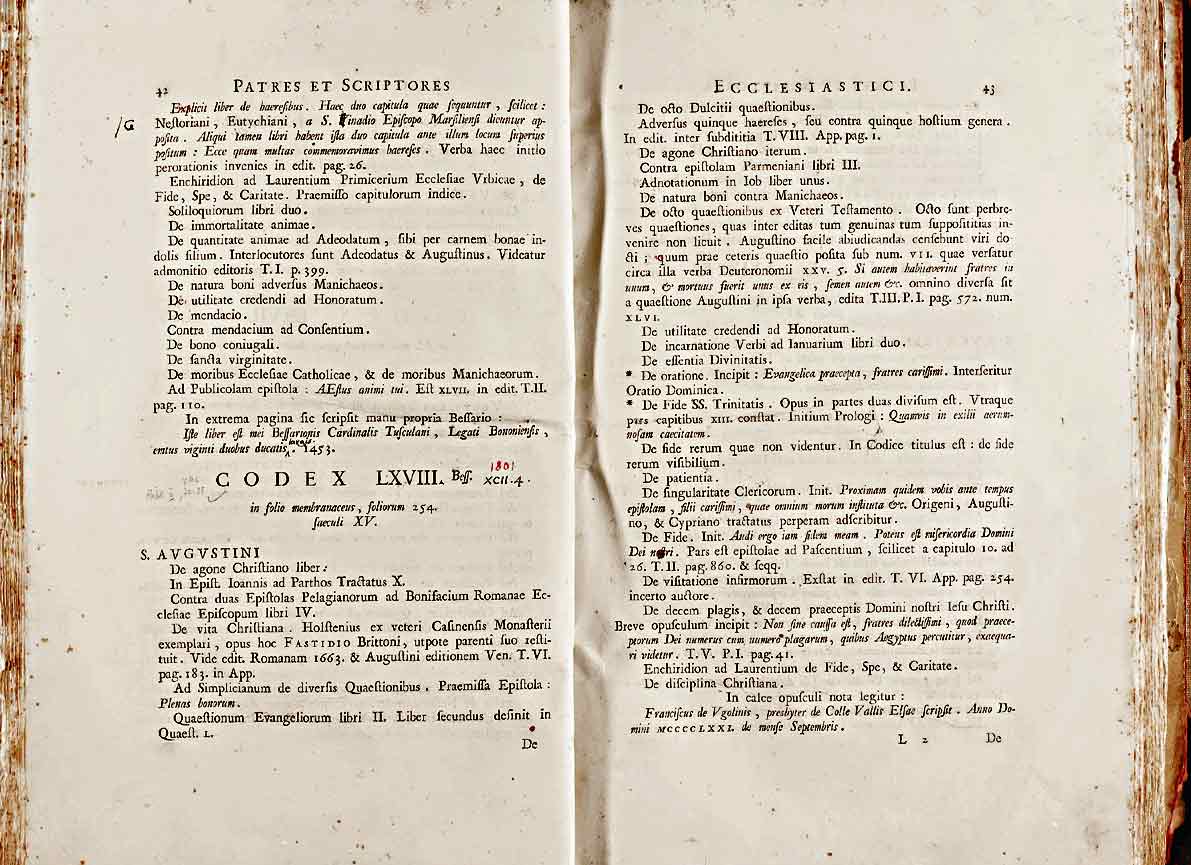 42 PATRES ET SCRIPTORES
Explicit liber de haeresibus. Haec duo capitula quae sequuntur, scilicet:
/G Nestoriani, Eutychiani, a S. inadio Episcopo Marsiliensi dicuntur ap-
posita. Aliqui tamen libri habent ista duo capitula ante illum locum superius
positum: Ecce quam multas commemoravimus haereses. Verba haec initio
perorationis invenies in edit. pag. 26.
Enchiridion ad Laurentium Primicerium Ecclesiae Vrbicae, de
Fide, Spe, & Caritate. Praemisso capitulorum indice.
Soliloquiorum libri duo.
De immortalitate animae.
De quantitate animae ad Adeodatum, sibi per carnem bonae in-
dolis filium. Interlocutores sunt Adeodatus & Augustinus. Videatur
admonitio editoris T. I. p. 399.
De natura boni adversus Manichaeos.
De utilitate credendi ad Honoratum.
De mendacio.
Contra mendacium ad Consentium.
De bono coniugali.
De sancta virginitate.
De moribus Ecclesiae Catholicae, & de moribus Manichaeorum.
Ad Publicolam epistola: AEstus animi tui. Est XLVII. in edit. T. II.
pag. 110.
In extrema pagina sic scripsit manu propria Bessario:
Iste liber est mei Bessarionis Cardinalis Tusculani, Legati Bononiensis,
emtus viginti duobus ducatis. 1453.
CODEX LXVIII. Bess. 1801 XCII.4.
in folio membranaceus, foliorum 254.
saeculi XV.
S. AVGVSTINI
De agone Christiano liber:
In Epist. Ioannis ad Parthos Tractatus X.
Contra duas Epistolas Pelagianorum ad Bonifacium Romanae Ec-
clesiae Episcopum libri IV.
De vita Christiana. Holstenius ex veteri Casinensis Monasterii
exemplari, opus hoc FASTIDIO Brittoni, utpote parenti suo resti-
tuit. Vide edit. Romanam 1663. & Augustini editionem Ven. T. VI.
pag. 183. in App.
Ad Simplicianum de diversis Quaestionibus. Praemissa Epistola:
Plenas bonorum.
Quaestionum Evangeliorum libri II. Liber secundus definit in
Quaest. L.
De
ECCLESIASTICI. 43
De octo Dulcitii quaestionibus.
Adversus quinque haereses, seu contra quinque hostium genera.
In edit. inter subdititia T. VIII. App. pag. 1.
De agone Christiano iterum.
Contra epistolam Parmeniani libri III.
Adnotationum in Iob liber unus.
De natura boni contra Manichaeos.
De octo quaestionibus ex Veteri Testamento. Octo sunt perbre-
ves quaestiones, quas inter editas tum genuinas tum supposititias in-
venire non licuit. Augustino facile abiudicandas censebunt viri do
cti; quum prae ceteris quaestio posita sub num. VII. quae versatur
circa illa verba Deuteronomii XXV. 5. Si autem habitaverint fratres in
unum, & mortuus fuerit unus ex eis, semen autem &c. omnino diversa sit
a quaestione Augustini in ipsa verba, edita T. III. P. I. pag. 572. num.
XLVI.
De utilitate credendi ad Honoratum.
De incarnatione Verbi ad Ianuarium libri duo.
De essentia Divinitatis.
* De oratione. Incipit: Evangelica praecepta, fratres carissimi. Interseritur
Oratio Dominica.
* De Fide SS. Trinitatis. Opus in partes duas divisum est. Vtraque
pars capitibus XIII. constat. Initium Prologi: Quamvis in exilii aerum-
nosam caecitatem.
De fide rerum quae non videntur. In Codice titulus est: de fide
rerum visibilium.
De patientia.
De singularitate Clericorum. Init. Proximam quidem vobis ante tempus
epistolam, filii carissimi, quae omnium morum instituta &c. Origeni, Augusti-
no, & Cypriano tractatus perperam adscribitur.
De Fide. Init. Audi ergo iam fidem meam. Potens est misericordia Domini
Dei nostri. Pars est epistolae ad Pascentium, scilicet a capitulo 10. ad
26. T. II. pag. 860. & seqq.
De visitatione infirmorum. Exstat in edit. T. VI. App. pag. 254.
incerto auctore.
De decem plagis, & decem praeceptis Domini nostri Iesu Christi.
Breve opusculum incipit: Non sine caussa est, fratres dilectissimi, quod praece-
ptorum Dei numerus cum numero plagarum, quibus Aegyptus percutitur, exaequa-
ri videtur. T. V. P. I. pag. 41.
Enchiridion ad Laurentium de Fide, Spe, & Caritate.
De disciplina Christiana.
In calce opusculi nota legitur:
Franciscus de Vgolinis, presbyter de Colle Vallis Elsae scripsit. Anno Do-
mini MCCCCLXXI. de mense Septembris.
L 2 De